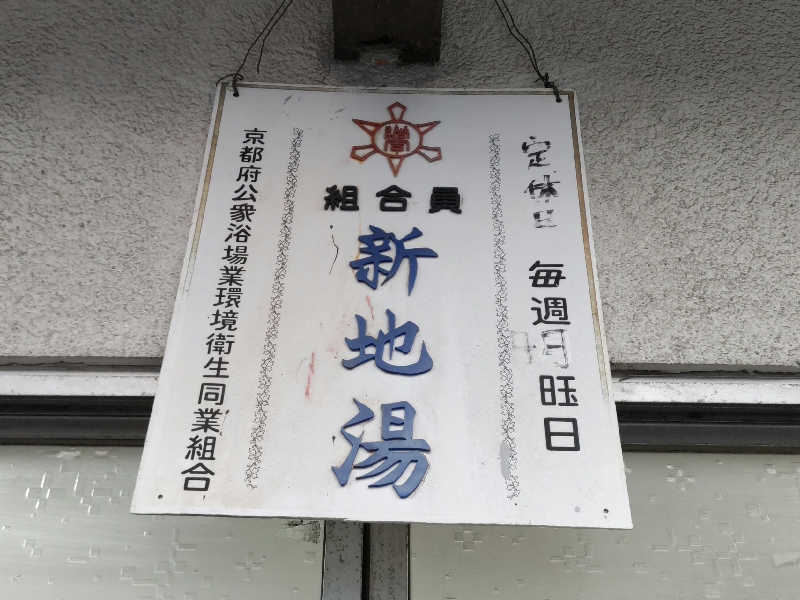 定休日 毎週月旺日
組合員
新地湯
京都府公衆浴場業環境衛生同業組合